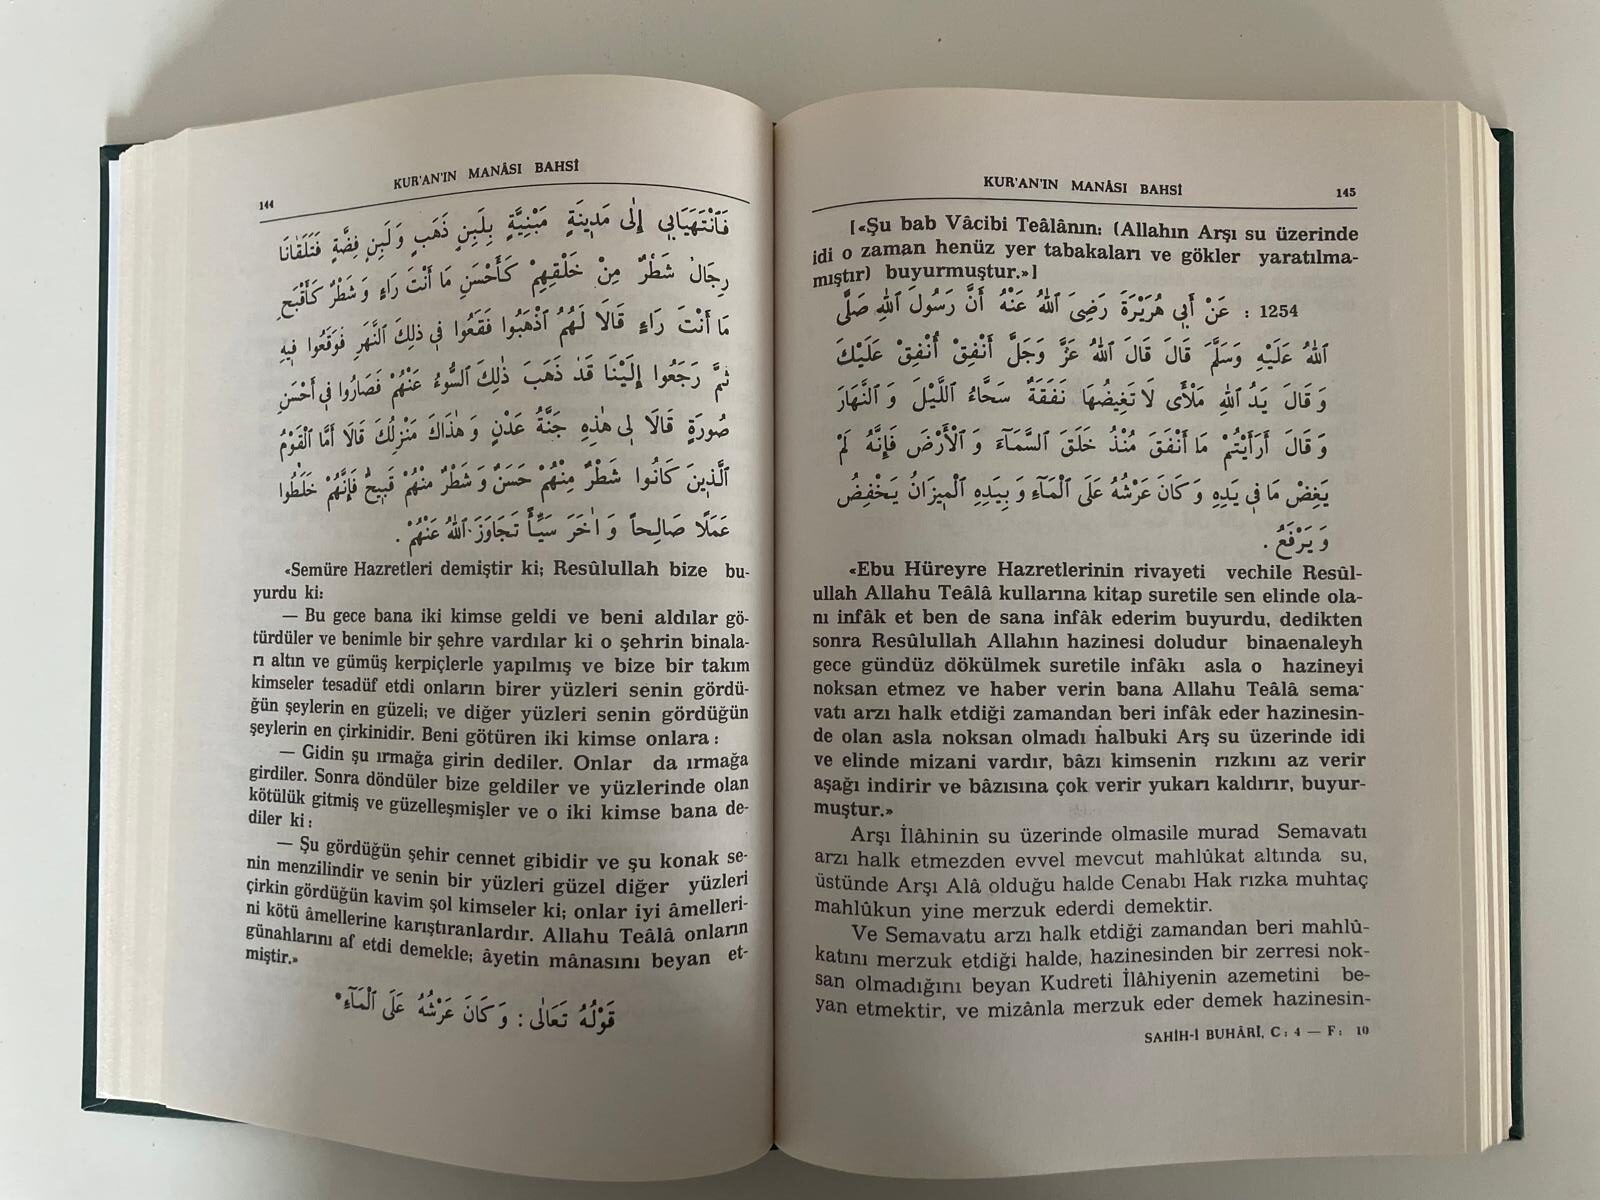 144
KUR'AN'IN MANÂSI BAHSİ
فَٱنْتَهَيَابِي إِلَى مَدِينَةٍ مَبْنِيَّةٍ بِلَبِنِ ذَهَبٍ وَ لَبِنِ فِضَّةٍ فَتَلَقَانَا
رِجَالٌ شَطْرٌ مِنْ خَلْقِهِمْ كَأَحْسَنِ مَا أَنْتَ رَاءٍ وَ شَطْرٌ كَأَقْبَحِ
مَا أَنْتَ رَاءٍ قَالَا لَهُمُ ٱذْهَبُوا فَقَعُوا فِي ذٰلِكَ ٱلنَّهَرِ فَوَقَعُوا فِيهِ
ثُمَّ رَجَعُوا إِلَيْنَا قَدْ ذَهَبَ ذٰلِكَ ٱلسُّوءُ عَنْهُمْ فَصَارُوا فِي أَحْسَنِ
صُورَةٍ قَالَا لِي هٰذِهِ جَنَّةُ عَدْنٍ وَ هٰذَاكَ مَنْزِلُكَ قَالَا أَمَّا ٱلْقَوْمُ
ٱلَّذِينَ كَانُوا شَطْرٌ مِنْهُمْ حَسَنٌ وَ شَطْرٌ مِنْهُمْ قَبِيحٌ فَإِنَّهُمْ خَلَطُوا
عَمَلًا صَالِحاً وَ اٰخَرَ سَيِّأً تَجَاوَزَ ٱللهُ عَنْهُمْ .
«Semüre Hazretleri demiştir ki; Resûlullah bize bu-
yurdu ki:
— Bu gece bana iki kimse geldi ve beni aldılar gö-
türdüler ve benimle bir şehre vardılar ki o şehrin binala-
rı altın ve gümüş kerpiçlerle yapılmış ve bize bir takım
kimseler tesadüf etdi onların birer yüzleri senin gördü-
ğün şeylerin en güzeli; ve diğer yüzleri senin gördüğün
şeylerin en çirkinidir. Beni götüren iki kimse onlara :
— Gidin şu ırmağa girin dediler. Onlar da ırmağa
girdiler. Sonra döndüler bize geldiler ve yüzlerinde olan
kötülük gitmiş ve güzelleşmişler ve o iki kimse bana de-
diler ki :
— Şu gördüğün şehir cennet gibidir ve şu konak se-
nin menzilindir ve senin bir yüzleri güzel diğer yüzleri
çirkin gördüğün kavim şol kimseler ki; onlar iyi âmelleri-
ni kötü âmellerine karıştıranlardır. Allahu Teâlâ onların
günahlarını af etdi demekle; âyetin mânasını beyan et-
miştir.»
قَوْلُهُ تَعَالٰى : وَ كَانَ عَرْشُهُ عَلَى ٱلْمَآءِ
KUR'AN'IN MANÂSI BAHSİ
145
[«Şu bab Vâcibi Teâlânın: (Allahın Arşı su üzerinde
idi o zaman henüz yer tabakaları ve gökler yaratılma-
mıştır) buyurmuştur.»]
1254 : عَنْ أَبِي هُرَيْرَةَ رَضِىَ ٱللهُ عَنْهُ أَنَّ رَسُولَ ٱللهِ صَلَّى
ٱللهُ عَلَيْهِ وَسَلَّمَ قَالَ قَالَ ٱللهُ عَزَّ وَجَلَّ أَنْفِقْ أُنْفِقْ عَلَيْكَ
وَ قَالَ يَدُ ٱللهِ مَلْأَى لَا تَغِيضُهَا نَفَقَةٌ سَحَّاءُ ٱللَّيْلَ وَ ٱلنَّهَارَ
وَ قَالَ أَرَأَيْتُمْ مَا أَنْفَقَ مُنْذُ خَلَقَ ٱلسَّمَآءَ وَ ٱلْأَرْضَ فَإِنَّهُ لَمْ
يَغِضْ مَا فِي يَدِهِ وَ كَانَ عَرْشُهُ عَلَى ٱلْمَآءِ وَ بِيَدِهِ ٱلْمِيزَانُ يَخْفِضُ
وَ يَرْفَعُ .
«Ebu Hüreyre Hazretlerinin rivayeti vechile Resûl-
ullah Allahu Teâlâ kullarına kitap suretile sen elinde ola-
nı infâk et ben de sana infâk ederim buyurdu, dedikten
sonra Resûlullah Allahın hazinesi doludur binaenaleyh
gece gündüz dökülmek suretile infâkı asla o hazineyi
noksan etmez ve haber verin bana Allahu Teâlâ sema-
vatı arzı halk etdiği zamandan beri infâk eder hazinesin-
de olan asla noksan olmadı halbuki Arş su üzerinde idi
ve elinde mizani vardır, bâzı kimsenin rızkını az verir
aşağı indirir ve bâzısına çok verir yukarı kaldırır, buyur-
muştur.»
Arşı İlâhinin su üzerinde olmasile murad Semavatı
arzı halk etmezden evvel mevcut mahlûkat altında su,
üstünde Arşı Alâ olduğu halde Cenabı Hak rızka muhtaç
mahlûkun yine merzuk ederdi demektir.
Ve Semavatu arzı halk etdiği zamandan beri mahlû-
katını merzuk etdiği halde, hazinesinden bir zerresi nok-
san olmadığını beyan Kudreti İlâhiyenin azemetini be-
yan etmektir, ve mizânla merzuk eder demek hazinesin-
SAHİH-İ BUHÂRİ, C : 4 — F : 10